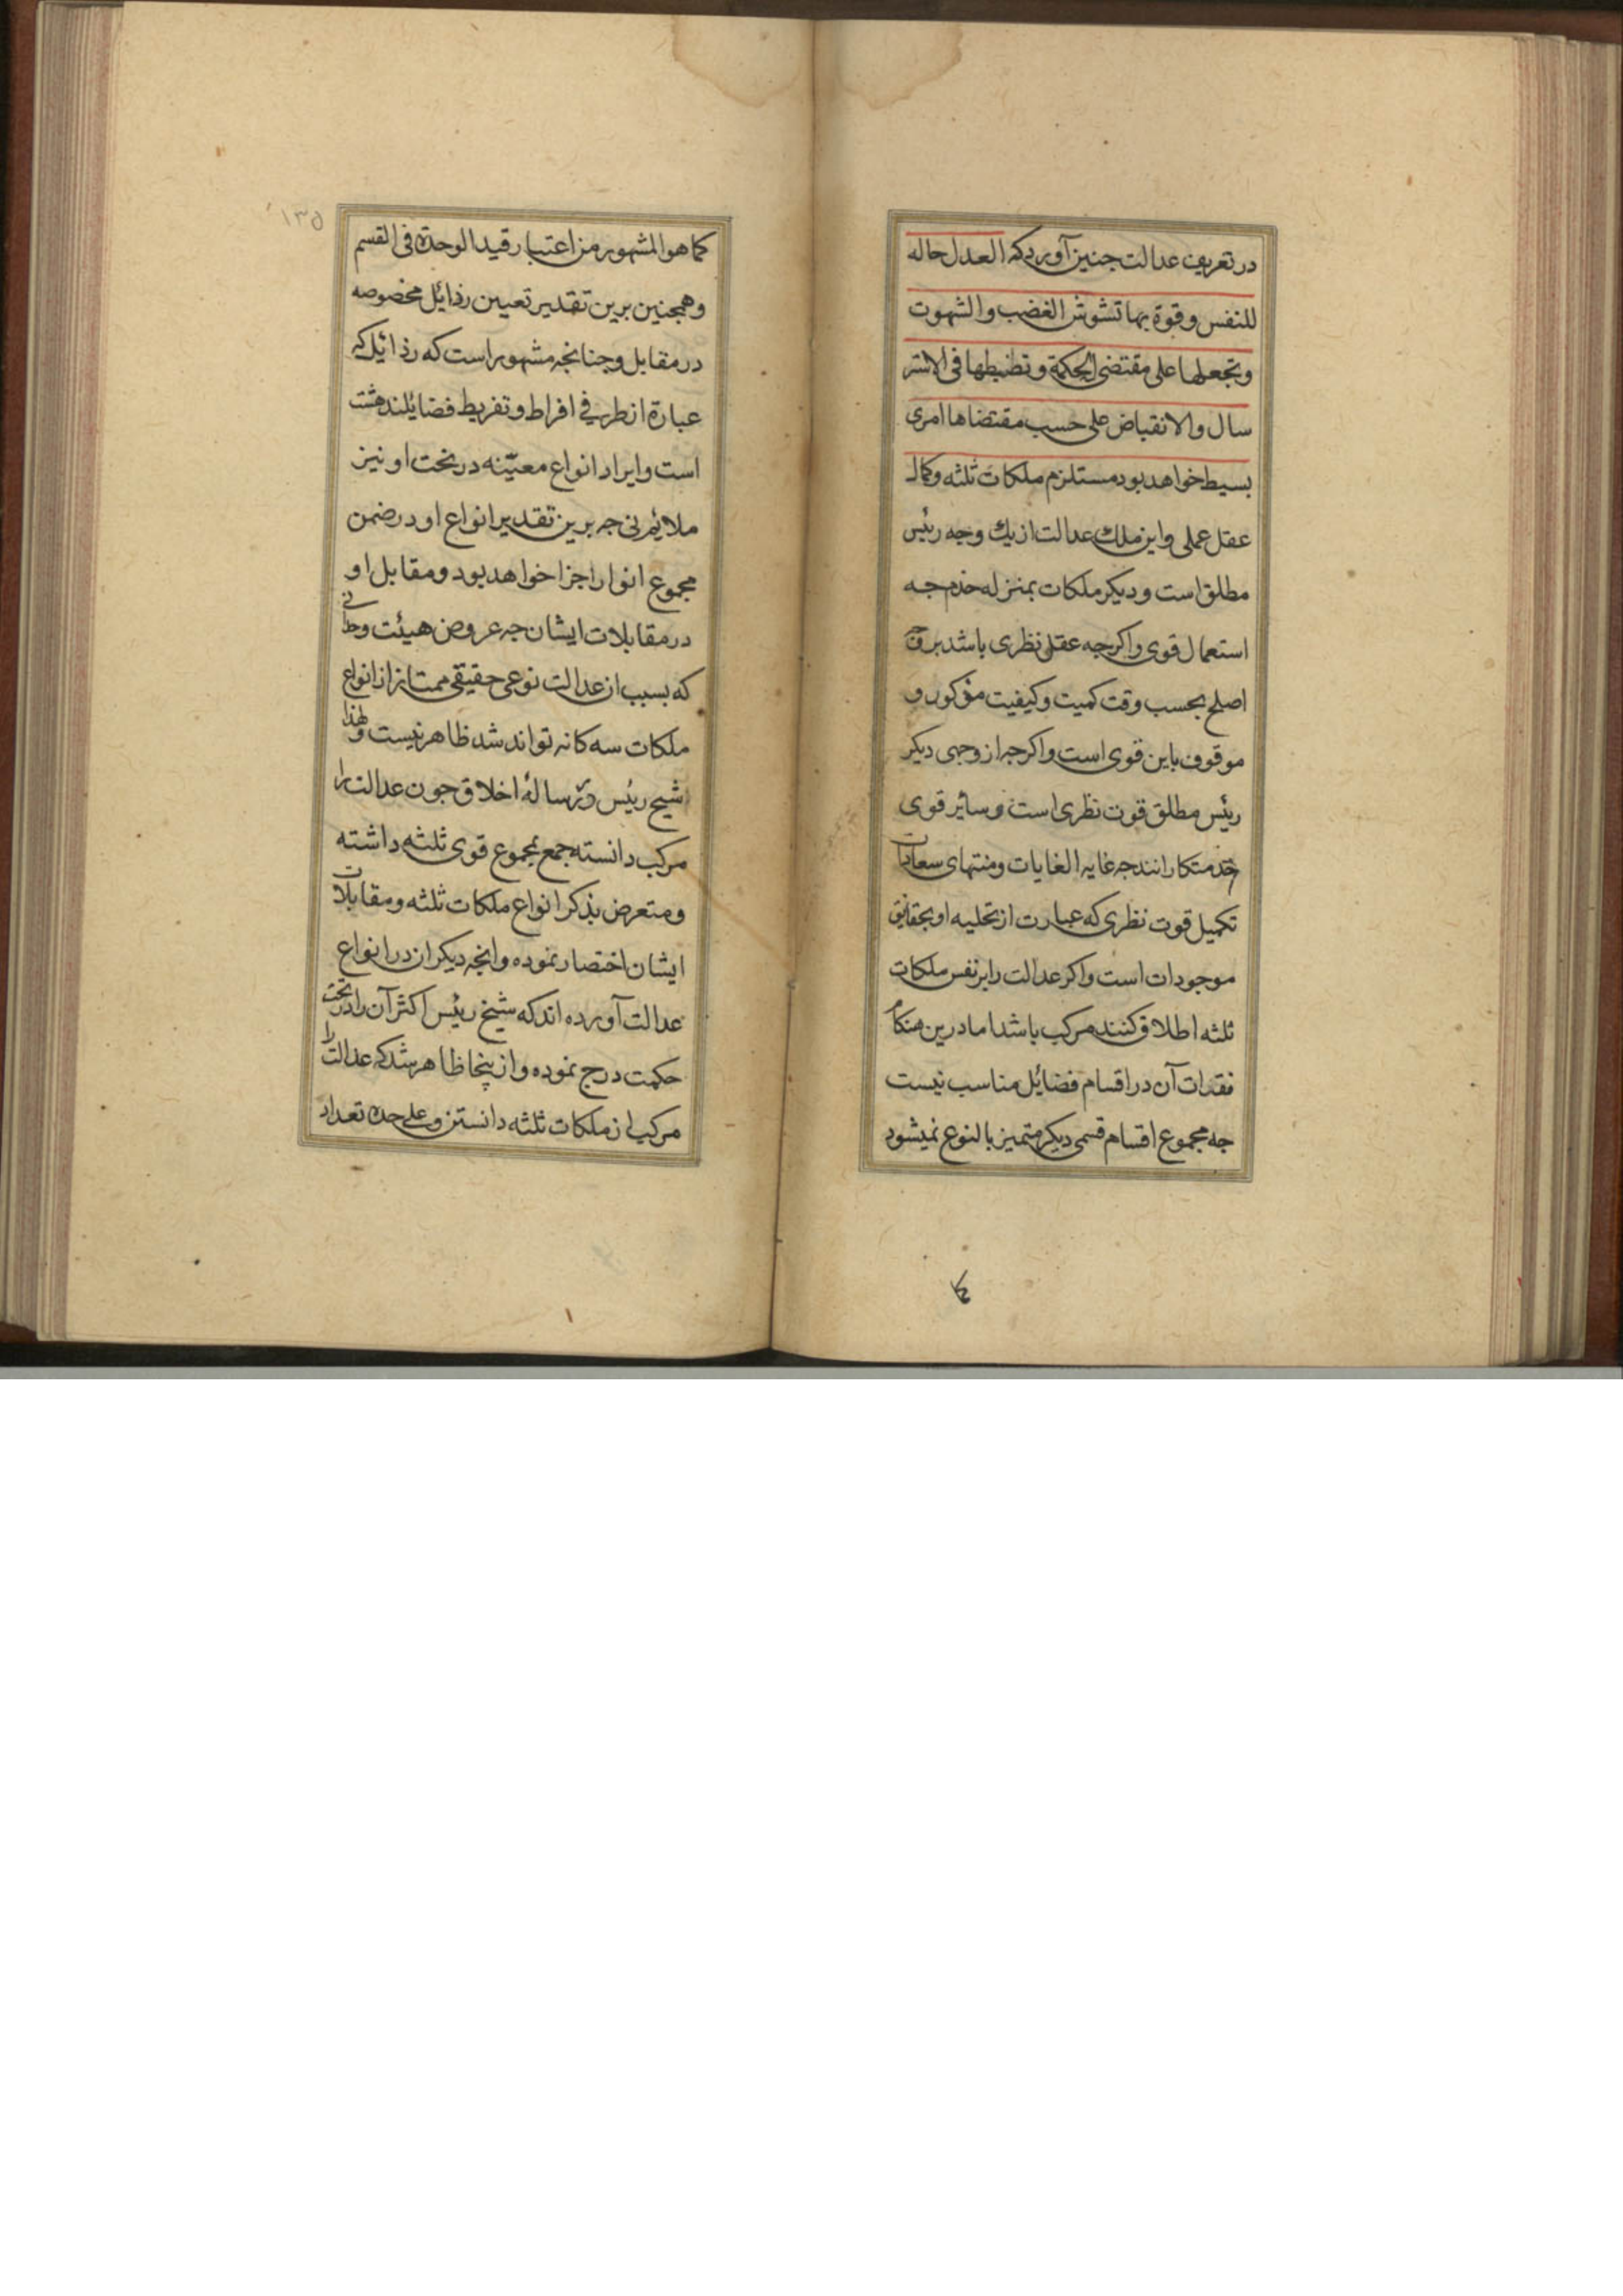 در تعریف عدالت جنین آورده که العدل حاله
للنفس وقوة بها تشوش الغضب والشهوت
وتجعلها علی مقتضی الحکمة وتضبطها فی الاستر
سال والانقباض علی حسب مقتضاها امری
بسیط خواهد بود مستلزم ملکات ثلثه وکمال
عقل عملی واین ملکه عدالت از یك وجه رئیس
مطلق است ودیکر ملکات بمنزله خدم جه
استعمال قوی واکرجه عقل نظری باشد بر وجه
اصلح بحسب وقت کمیت وکیفیت مذکور و
موقوف باین قوی است واکرجه از وجهی دیکر
رئیس مطلق قوت نظری است وسائر قوی
خدمتکارانند جه غایه الغایات ومنتهای سعادات
تکمیل قوت نظری که عبارت از تحلیه او بحقائق
موجودات است واکر عدالت را بر نفس ملکات
ثلثه اطلاق کنند مرکب باشد اما درین هنکام
فقدات آن در اقسام فضائل مناسب نیست
جه مجموع اقسام قسمی دیکر متمیز بالنوع نمیشود
کما
١٣٥
کما هو المشهور من اعتبار قید الوحدة فی القسم
وهمجنین برین تقدیر تعیین رذائل مخصوصه
در مقابل وجنانجه مشهور است که رذائل که
عبارة از طرفی افراط وتفریط فضایلند هشت
است وایراد انواع معیّنه در تحت او نیز
ملائم نی جه برین تقدیر انواع او در ضمن
مجموع انوار اجزا خواهد بود ومقابل او
در مقابلات ایشان جه عروض هیئت وحدانی
که بسبب ان عدالت نوعی حقیقی ممتاز از انواع
ملکات سه کانه تواند شد ظاهر نیست ولهذا
شیخ رئیس در رسالهٔ اخلاق جون عدالت را
مرکب دانسته جمع مجموع قوی ثلثه داشته
ومتعرض بذکر انواع ملکات ثلثه ومقابلات
ایشان اختصار نموده وانجه دیکران در انواع
عدالت آورده اند که شیخ رئیس اکثر آن را در تحت
حکمت درج نموده واز ینجا ظاهر شد که عدالت را
مرکب از ملکات ثلثه دانستن وعلی حده تعداد